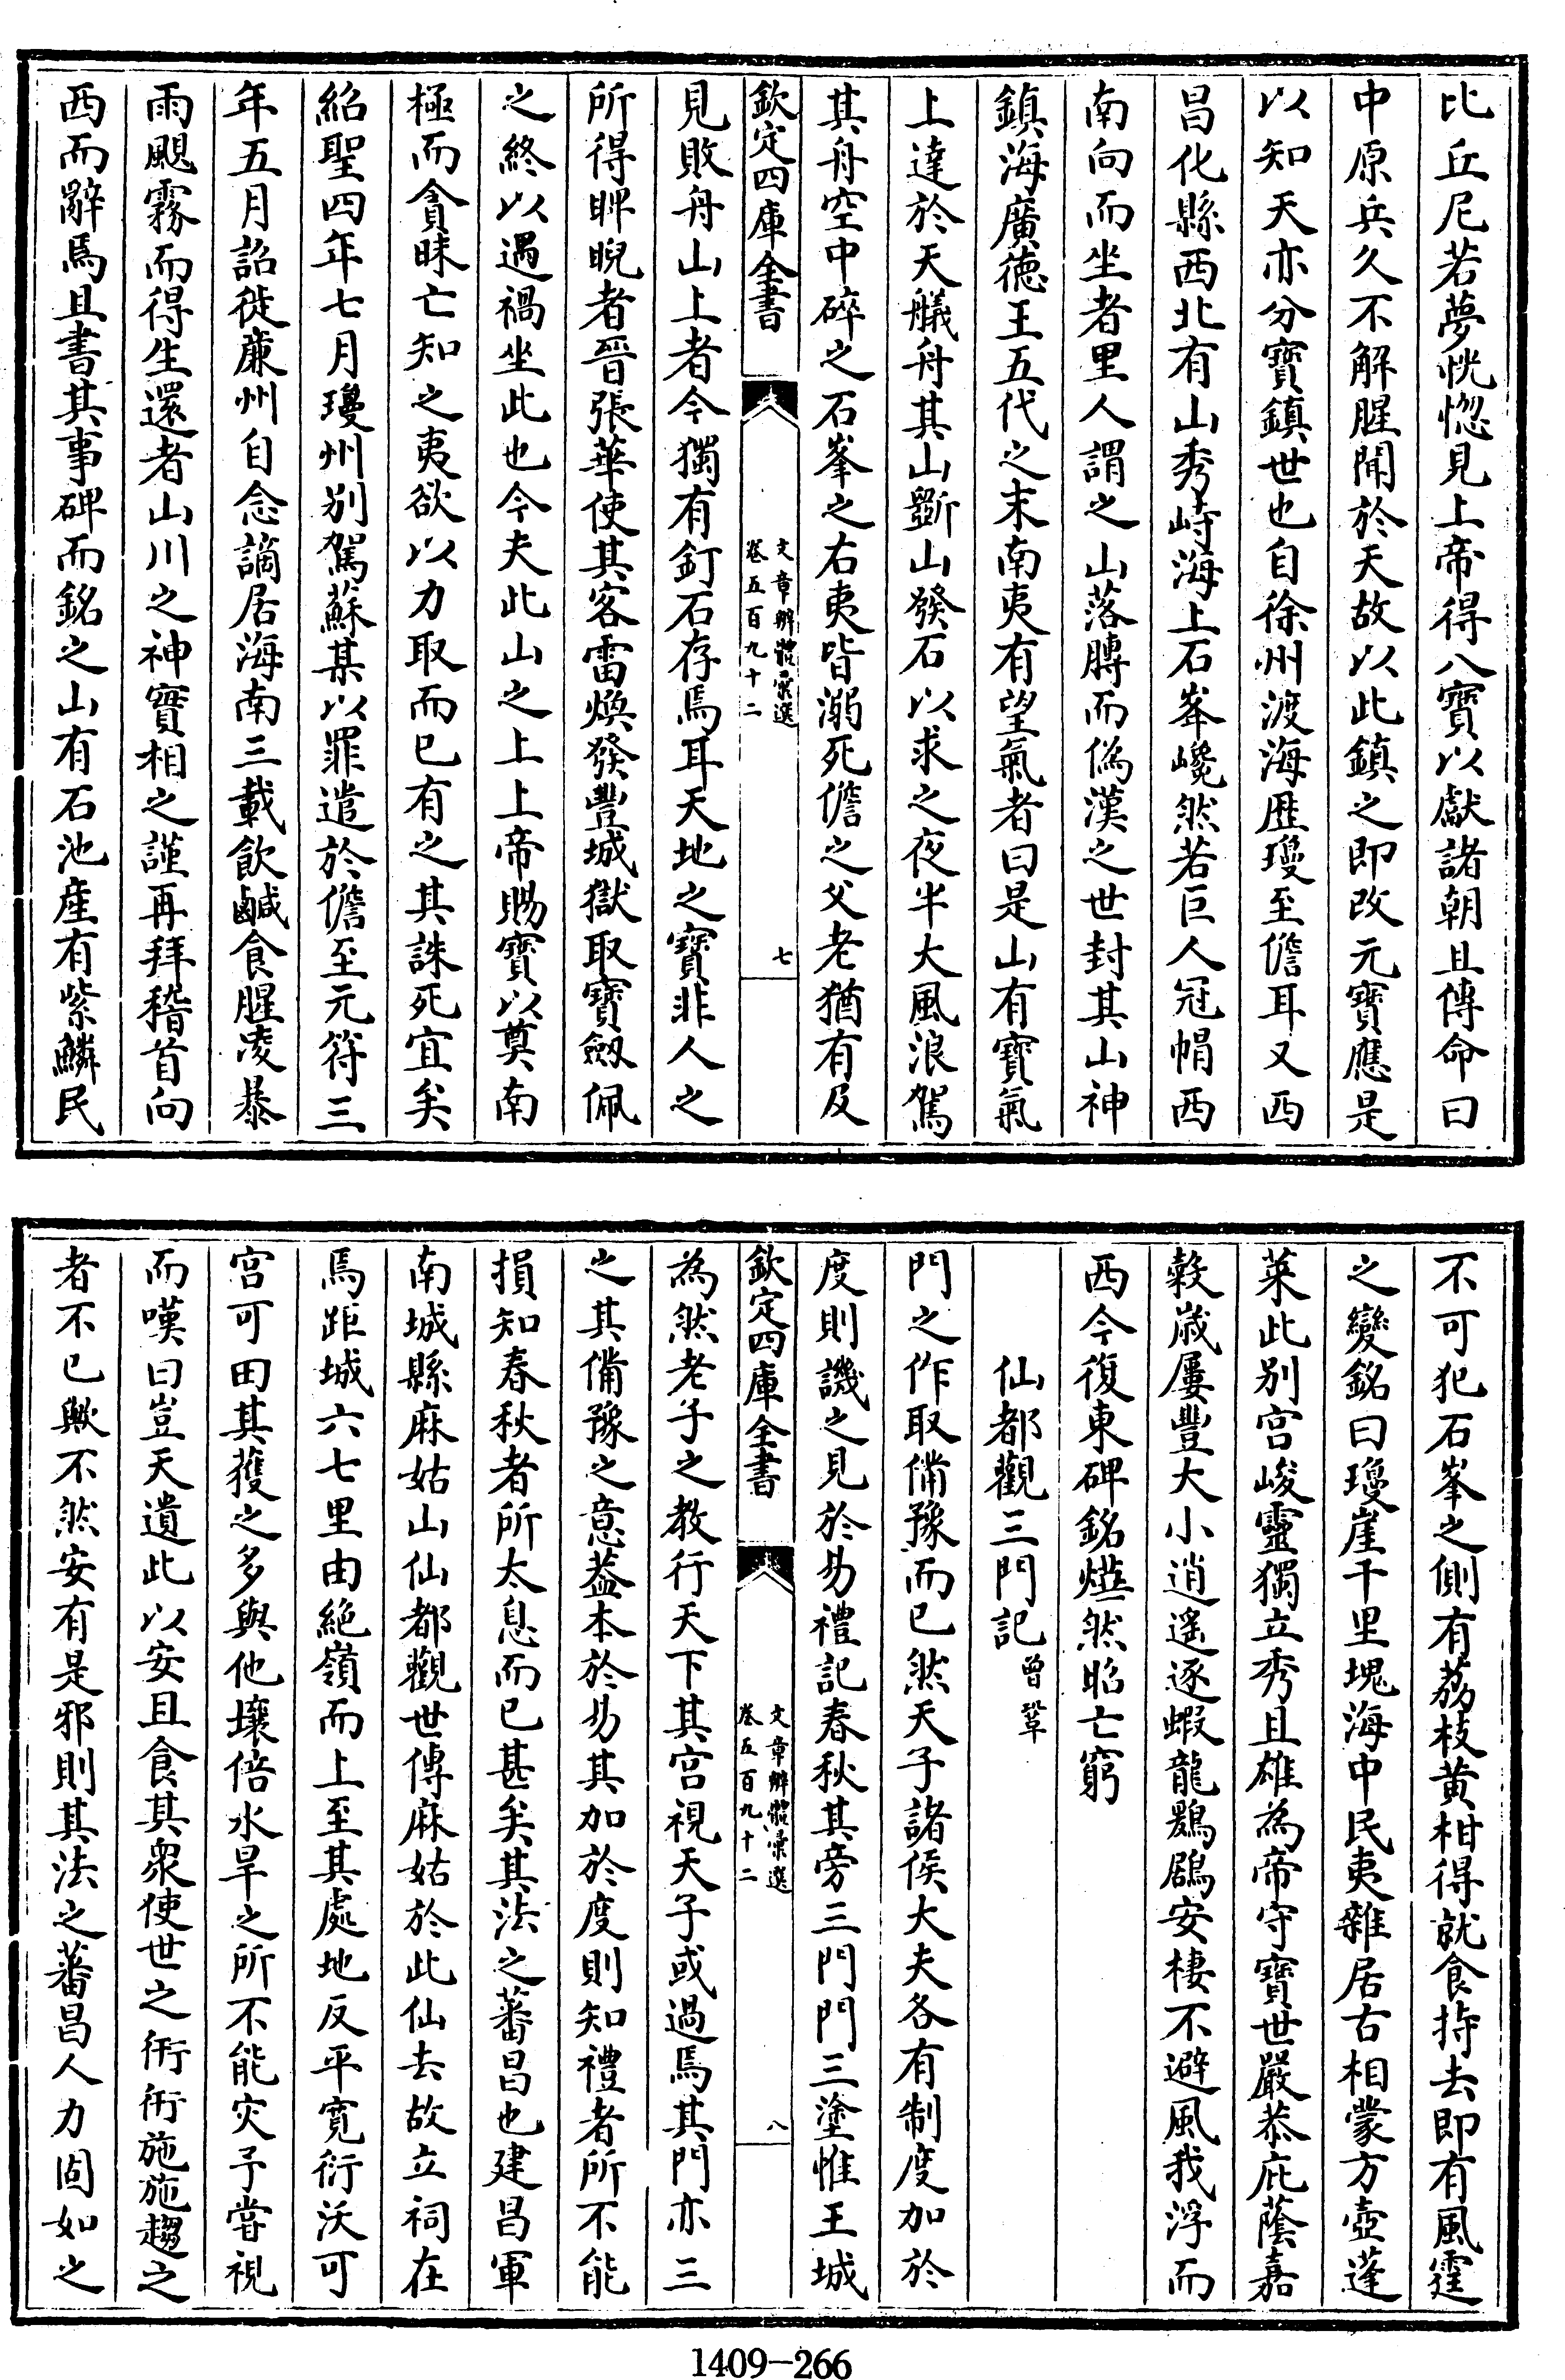 比丘尼若夢恍惚見上帝得八寶以獻諸朝且傳命曰
中原兵久不解腥聞於天故以此鎮之即改元寶應是
以知天亦分寶鎮世也自徐州渡海歴瓊至儋耳又西
昌化縣西北有山秀峙海上石峯巉然若巨人冠帽西
南向而坐者里人謂之山落膊而偽漢之世封其山神
鎮海廣德王五代之末南夷有望氣者曰是山有寶氣
上達於天艤舟其山斷山發石以求之夜半大風浪駕
其舟空中碎之石峯之右夷皆溺死儋之父老猶有及
欽定四庫全書
文章辨體彙選
卷五百九十二
七
見敗舟山上者今獨有釘石存焉耳天地之寶非人之
所得睥睨者晉張華使其客雷煥發豐城獄取寶劔佩
之終以遇禍坐此也今夫此山之上上帝賜寶以奠南
極而貪昧亡知之夷欲以力取而已有之其誅死宜矣
紹聖四年七月瓊州别駕蘇某以罪遣於儋至元符三
年五月詔徙亷州自念謫居海南三載飲鹹食腥凌暴
雨颶霧而得生還者山川之神實相之謹再拜稽首向
西而辭焉且書其事碑而銘之山有石池産有紫鱗民
不可犯石峯之側有荔枝黄柑得就食持去即有風霆
之變銘曰瓊崖千里塊海中民夷雜居古相蒙方壺蓬
萊此别宫峻靈獨立秀且雄為帝守寶世嚴恭庇蔭嘉
穀歳屢豐大小逍遙逐蝦龍鷃鶋安棲不避風我浮而
西今復東碑銘燁然昭亡窮
仙都觀三門記 曾鞏
門之作取備豫而已然天子諸侯大夫各有制度加於
度則譏之見於易禮記春秋其旁三門門三塗惟王城
欽定四庫全書
文章辨體彙選
卷五百九十二
八
為然老子之教行天下其宫視天子或過焉其門亦三
之其備豫之意蓋本於易其加於度則知禮者所不能
損知春秋者所太息而已甚矣其法之蕃昌也建昌軍
南城縣麻姑山仙都觀世傳麻姑於此仙去故立祠在
焉距城六七里由絶嶺而上至其處地反平寛衍沃可
宫可田其獲之多與他壤倍水旱之所不能灾予嘗視
而嘆曰豈天遺此以安且食其衆使世之衎衎施施趨之
者不已歟不然安有是邪則其法之蕃昌人力固如之
1409-266